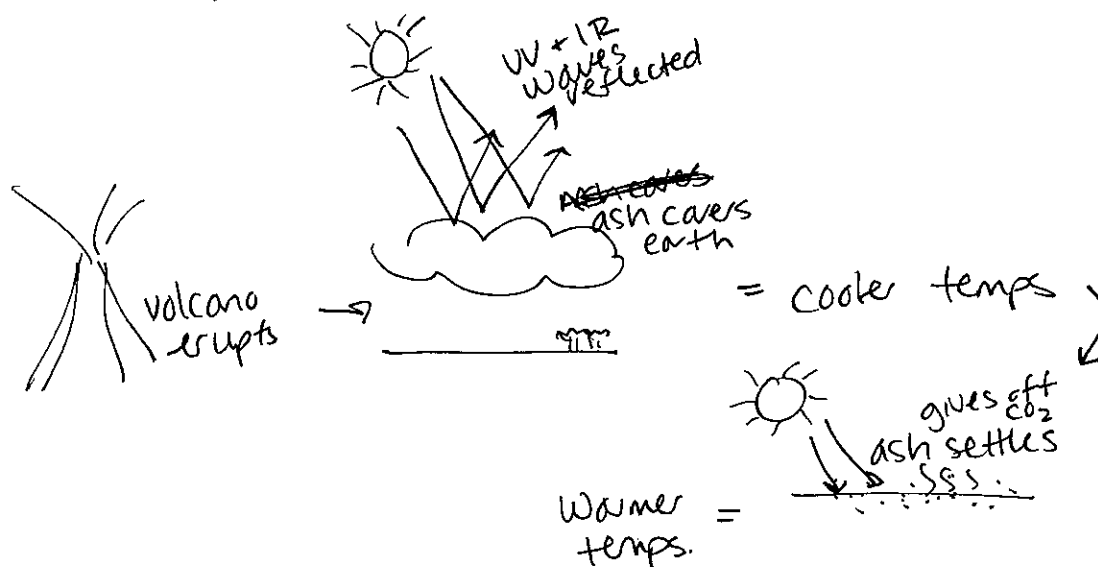 UV + IR
waves
reflected
ash covers
earth
volcano
erupts
= cooler temps
gives off
CO2
ash settles
Warmer =
temps.